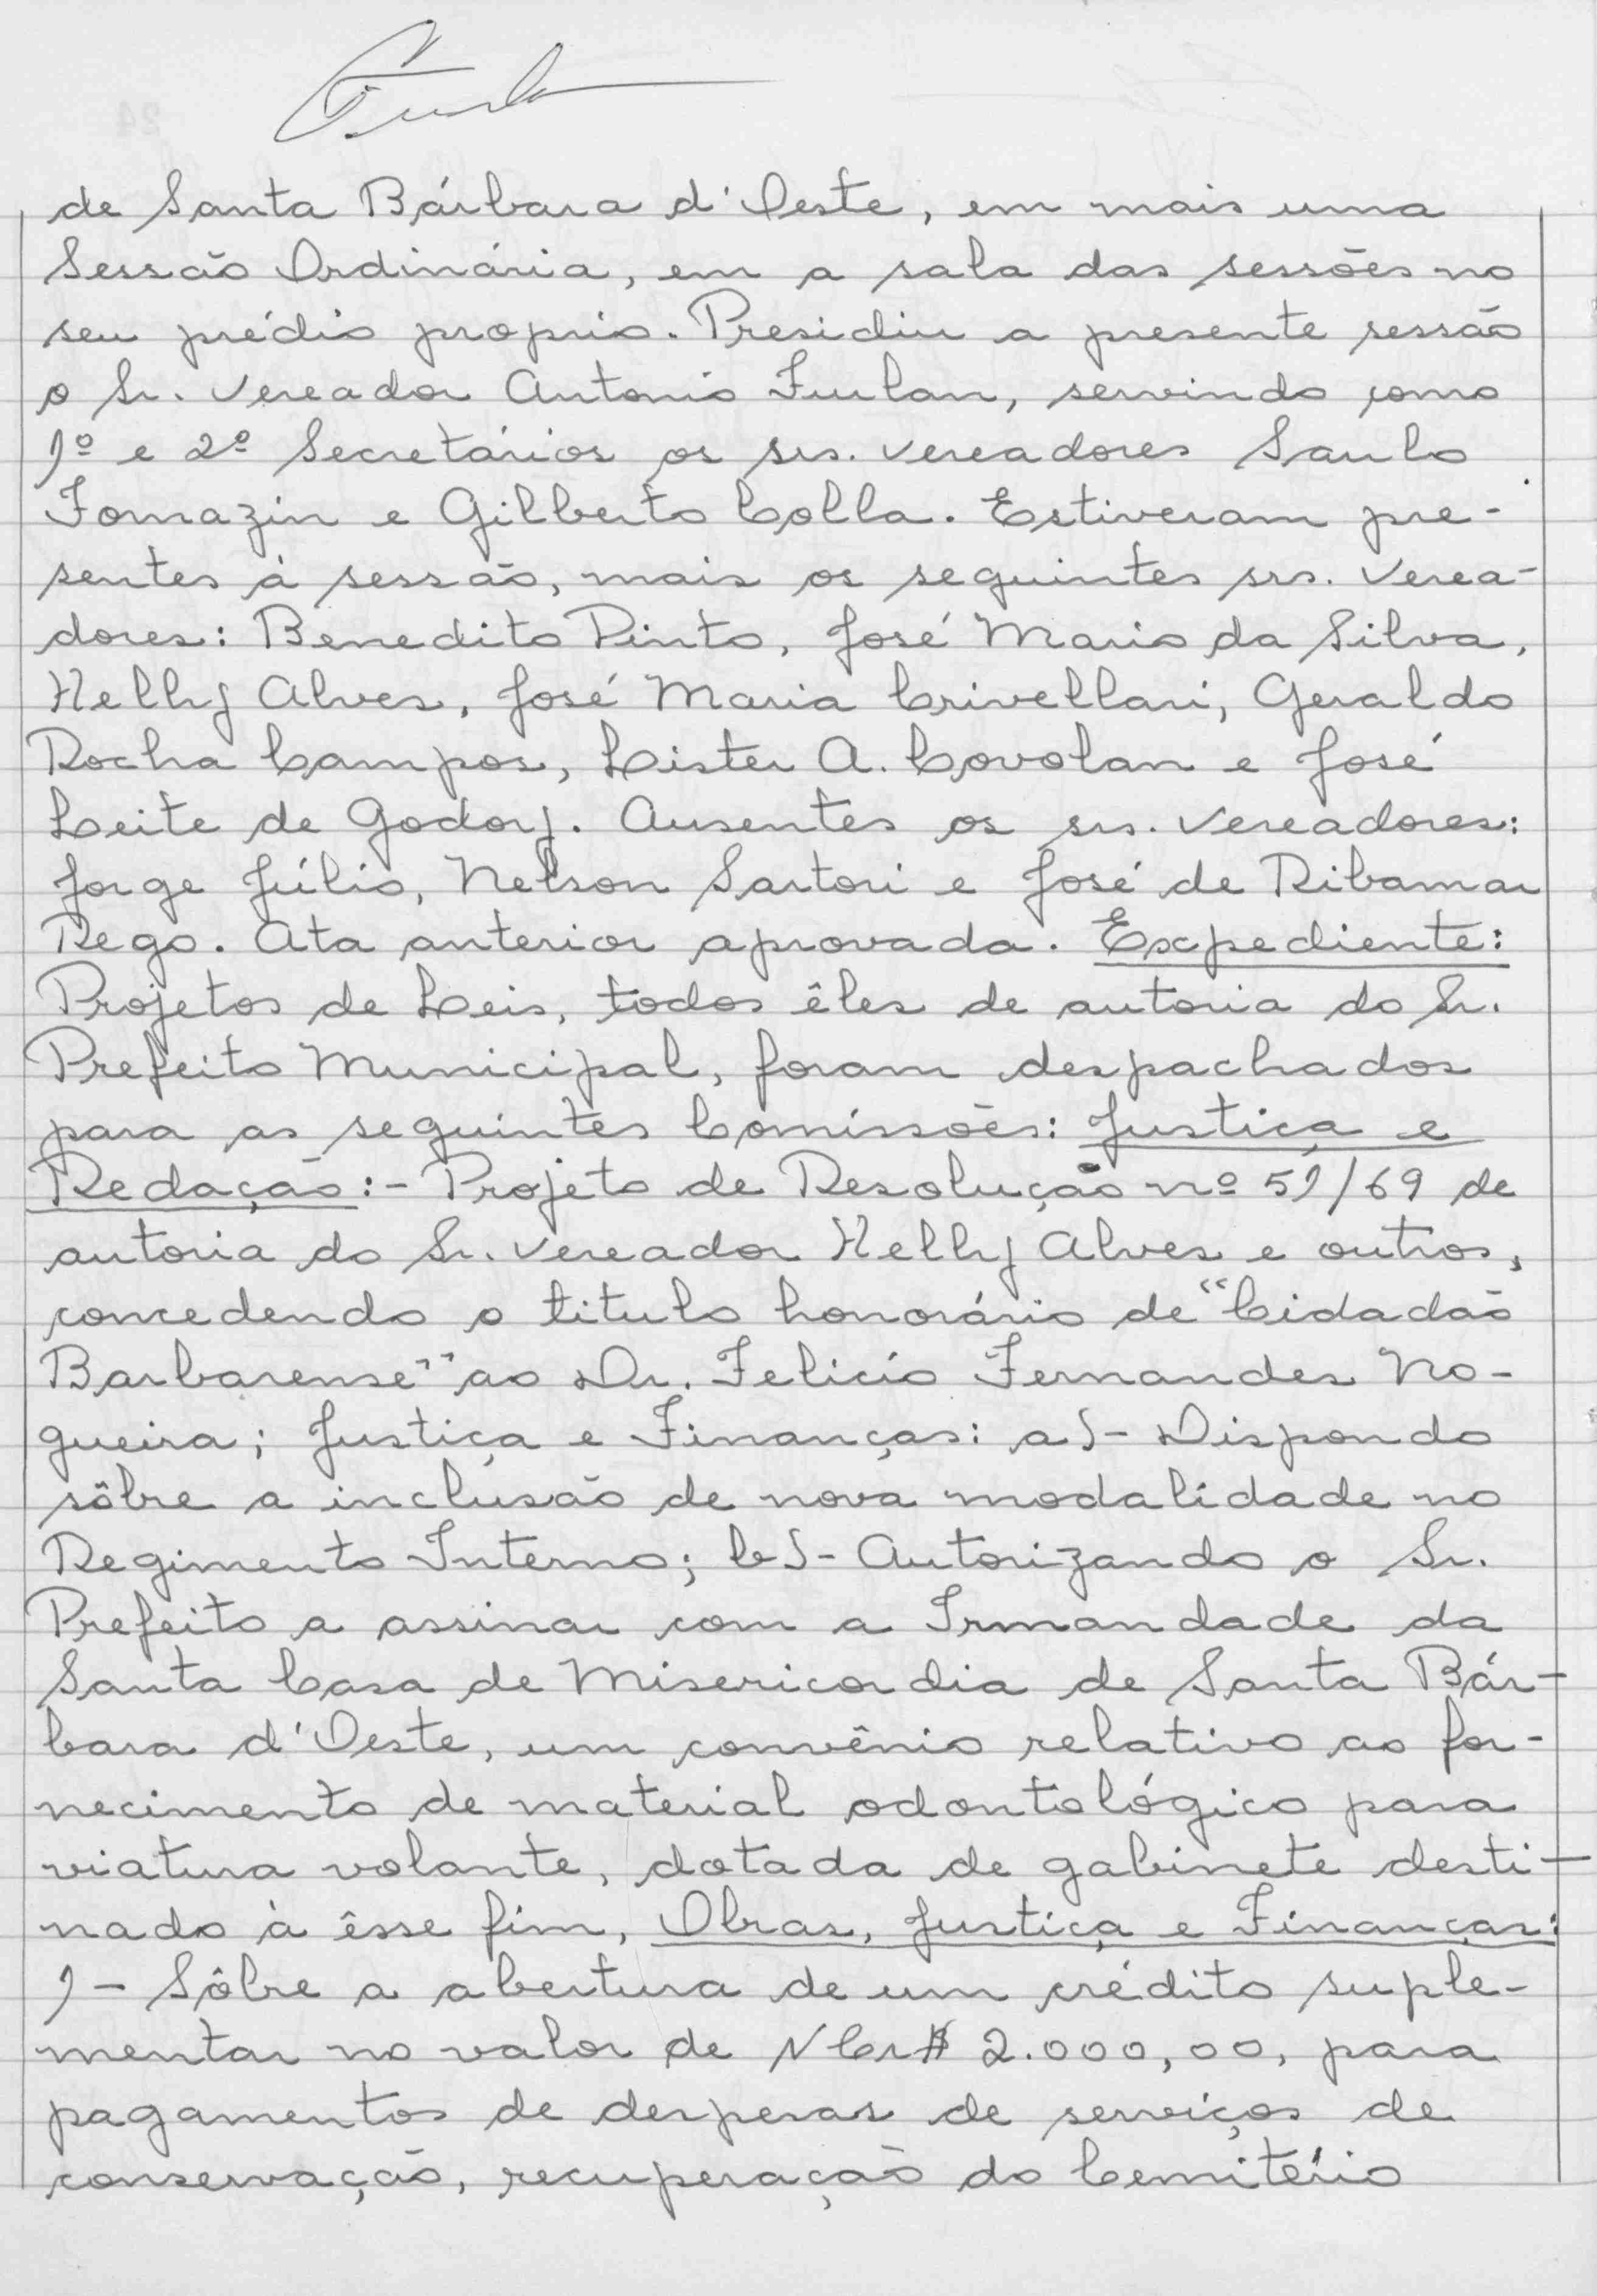 de Santa Bárbara d'Oeste, em mais uma
Sessão Ordinária, em a sala das sessões no
seu prédio proprio. Presidiu a presente sessão
o Sr. Vereador Antonio Furlan, servindo como
1º e 2º Secretários os srs. Vereadores Saulo
Fornazin e Gilberto Colla. Estiveram pre-
sentes à sessão, mais os seguintes srs. Verea-
dores: Benedito Pinto, José Mario da Silva,
Helly Alves, José Maria Crivellari, Geraldo
Rocha Campos, Lister A. Covolan e José
Leite de Godoy. Ausentes os srs. Vereadores:
Jorge Júlio, Nelson Sartori e José de Ribamar
Rego. Ata anterior aprovada. Expediente:
Projetos de Leis, todos êles de autoria do Sr.
Prefeito Municipal, foram despachados
para as seguintes Comissões: Justiça e
Redação:- Projeto de Resolução nº 51/69 de
autoria do Sr. Vereador Helly Alves e outros,
concedendo o titulo honorário de "Cidadão
Barbarense" ao Dr. Felicio Fernandes No-
gueira; Justiça e Finanças: a)- Dispondo
sôbre a inclusão de nova modalidade no
Regimento Interno; b)- Autorizando o Sr.
Prefeito a assinar com a Irmandade da
Santa Casa de Misericordia de Santa Bár-
bara d'Oeste, um convênio relativo ao for-
necimento de material odontológico para
viatura volante, dotada de gabinete desti-
nado à êsse fim, Obras, Justiça e Finanças:
1- Sôbre a abertura de um crédito suple-
mentar no valor de NCr$ 2.000,00, para
pagamentos de despesas de serviços de
conservação, recuperação do Cemitério